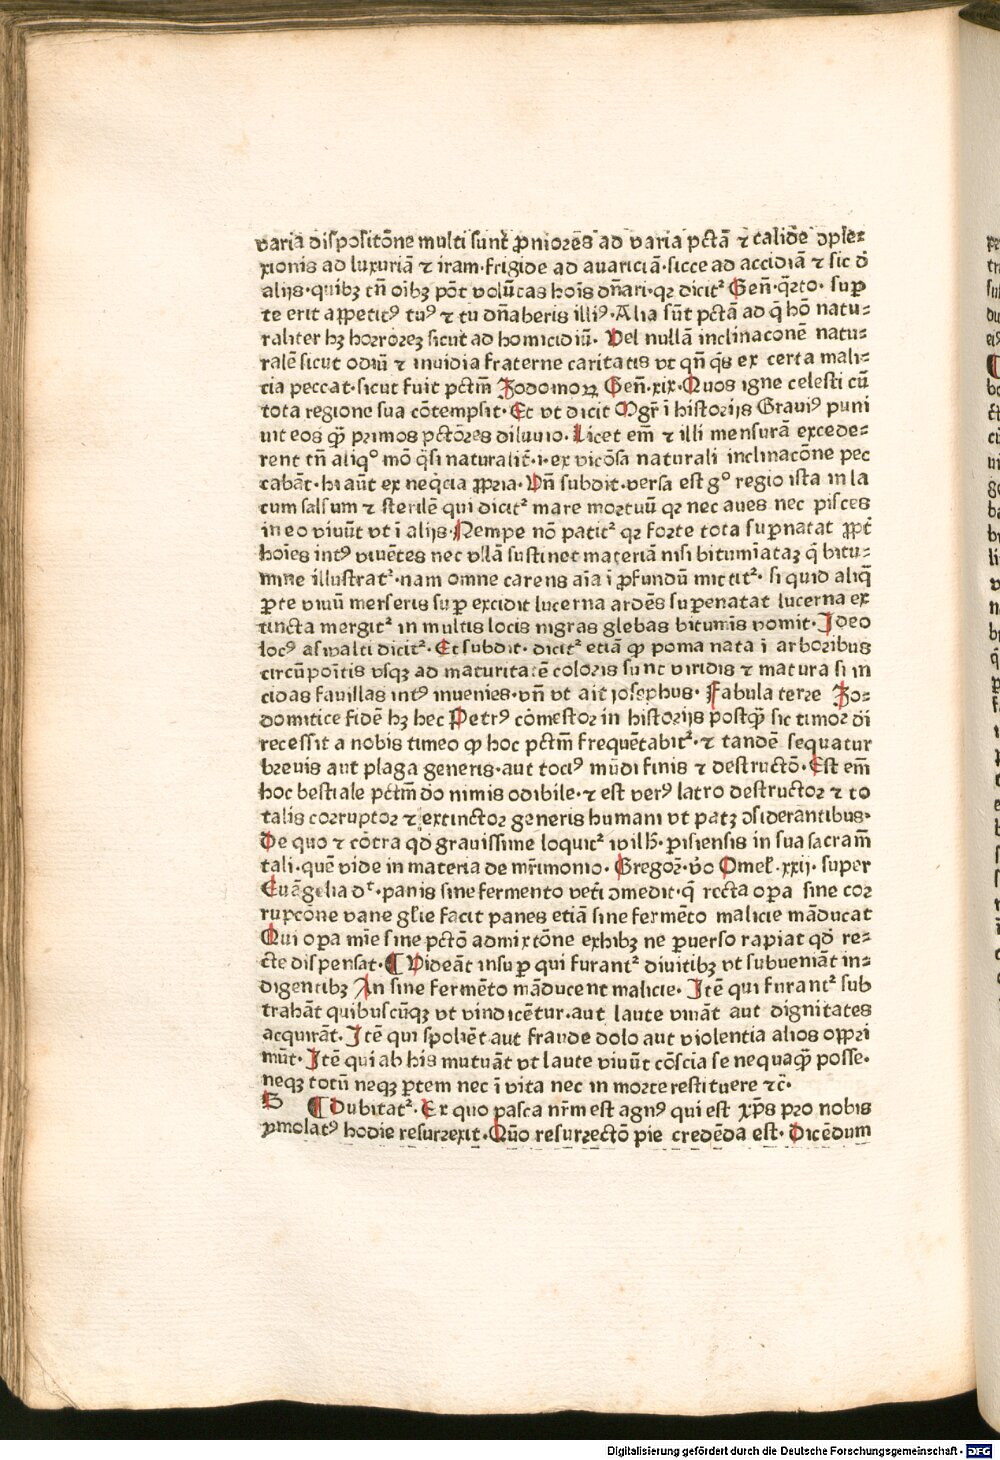 varia dispositōne multi sunt ꝓniores ad varia pctā ⁊ calide ↄple⸗
xionis ad luxuriā ⁊ iram·frigide ad auariciā·sicce ad accidiā ⁊ sic d̄
alijs·quibꝫ tn̄ oibꝫ pōt volūtas hoīs dn̄ari·qꝛ dicit² Gen̄·q̄rto· suꝑ
te erit appetitꝰ tuꝰ ⁊ tu dn̄aberis illiꝰ·Alia sūt pctā ad q̄ hō natu⸗
raliter hꝫ horrorez sicut ad homicidiū· Vel nullā inclinaconē natu⸗
ralē sicut odiū ⁊ inuidia fraterne caritatis vt qn̄ q̄s ex certa mali⸗
cia peccat·sicut fuit pctm̄ Zodomoꝝ Gen̄·xix·Quos igne celesti cū
tota regione sua cōtempsit·Et vt dicit Mgr̄ ī historijs Grauiꝰ puni
uit eos qꝫ̄ primos pctōres diluuio·Licet em̄ ⁊ illi mensurā excede⸗
rent tn̄ aliqº mō q̄si naturalit̄·i·ex vicōsa naturali inclinacōne pec
cabāt·hi aūt ex neq̄cia ꝓpria·Vn̄ subdit·versa est gº regio ista in la
cum salsum ⁊ sterilē qui dicit² mare mortuū qꝛ nec aues nec pisces
in eo viuūt vt ī alijs·Nempe nō patit² qꝛ forte tota suꝑnatat ꝓpt̄
hoīes intꝰ viuētes nec vllā sustinet materiā nisi bitumīataꝫ q̄ bitu⸗
mine illustrat²·nam omne carens aīa ī ꝓfundū mittit²· si quid aliq̄
ꝑte viuū merseris suꝑ excidit lucerna ardēs supenatat lucerna ex
tincta mergit² in multis locis nigras glebas bituminis vomit·Ideo
locꝰ aswalti dicit²·Et subdit· dicit² etiā qꝫ poma nata ī arboribus
circūpoītis vsqꝫ ad maturitatē coloris sunt viridis ⁊ matura si in
cidas fauillas intꝰ inuenies·vn̄ vt ait josephus· Fabula terre Zo⸗
domitice fidē hꝫ hec Petrꝰ cōmestor in historijs postqꝫ̄ sic timor dī
recessit a nobis timeo qꝫ hoc pctm̄ frequētabit²·⁊ tandē sequatur
breuis aut plaga generis·aut tociꝰ mūdi finis ⁊ destructō·Est em̄
hoc bestiale pctm̄ dō nimis odibile·⁊ est verꝰ latro destructor ⁊ to
talis corruptor ⁊ extinctor generis humani vt patꝫ ↄsiderantibus·
De quo ⁊ cōtra qd̄ grauissime loquit² wilh̄·ꝑisiensis in sua sacram̄
tali·quē vide in materia de mr̄imonio·Gregor̄·vō Omel̄·xxij·super
Euāgelia dᵗ·panis sine fermento veti ↄmedit·q̄ recta oꝑa sine cor
rupcone vane gl̄ie facit panes etiā sine fermēto malicie māducat
Qui oꝑa mīe sine pctō admixtōne exhibꝫ ne ꝑuerso rapiat qd̄ re⸗
cte dispensat·¶ Videāt insuꝑ qui furant² diuitibꝫ vt subueniāt in⸗
digentibꝫ An sine fermēto māducent malicie·Itē qui furant² sub
trahāt quibuscūqꝫ vt vindicētur·aut laute viuāt aut dignitates
acquirāt·Itē qui spoliēt aut fraude dolo aut violentia alios oppri
mūt·Itē qui ab his mutuāt vt laute viuūt cōscia se nequaqꝫ̄ posse·
neqꝫ totū neqꝫ ꝑtem nec ī vita nec in morte restituere ⁊c̄·
B ¶ Dubitat²·Ex quo pasca nr̄m est agnꝰ qui est xp̄s pro nobis
ymolatꝰ hodie resurrexit·Quō resurrectō pie credēda est·Dicēdum
Digitalisierung gefördert durch die Deutsche Forschungsgemeinschaft - DFG